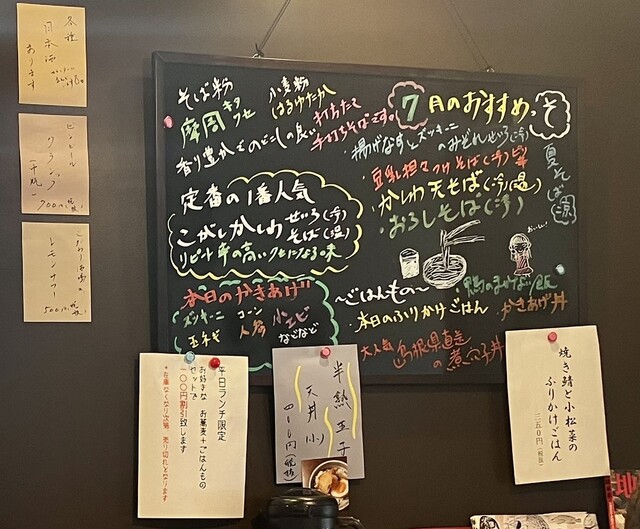 各種
日本酒
あります
ビンビール
クラシック
一中瓶一
700円(税抜)
こだわり生搾り
レモンサワー
500円(税抜)
そば粉
摩周
キタワセ
小麦粉
はるゆたか
香り豊かでのどごしの良い打ちたて
手打ちそばです。
定番の1番人気
こがしかしわ せいろ(冷)
そば(温)
リピート率の高いクセになる味
本日のかきあげ
ズッキーニ コーン 小エビ
玉ネギ 人参 などなど
7月のおすすめっそ
・揚げなすとズッキーニ
のみぞれせいろ(冷)
・豆乳担々つけそば(冷)
・かしわ天そば(冷)(温)
・おろしそば(冷)
夏そば
涼
おいしい!
〜ごはんもの〜
・本日のふりかけごはん
・鶏のまかない飯
・かきあげ丼
大人気 島根県直送
の煮穴子丼
平日ランチ限定
お好きな お蕎麦+ごはんもの
セットで
一〇〇円割引致します
*在庫なくなり次第、売り切れとなります
半熟玉子
天丼(小)
四〇〇円(税抜)
焼き鯖と小松菜の
ふりかけごはん
三五〇円(税抜)